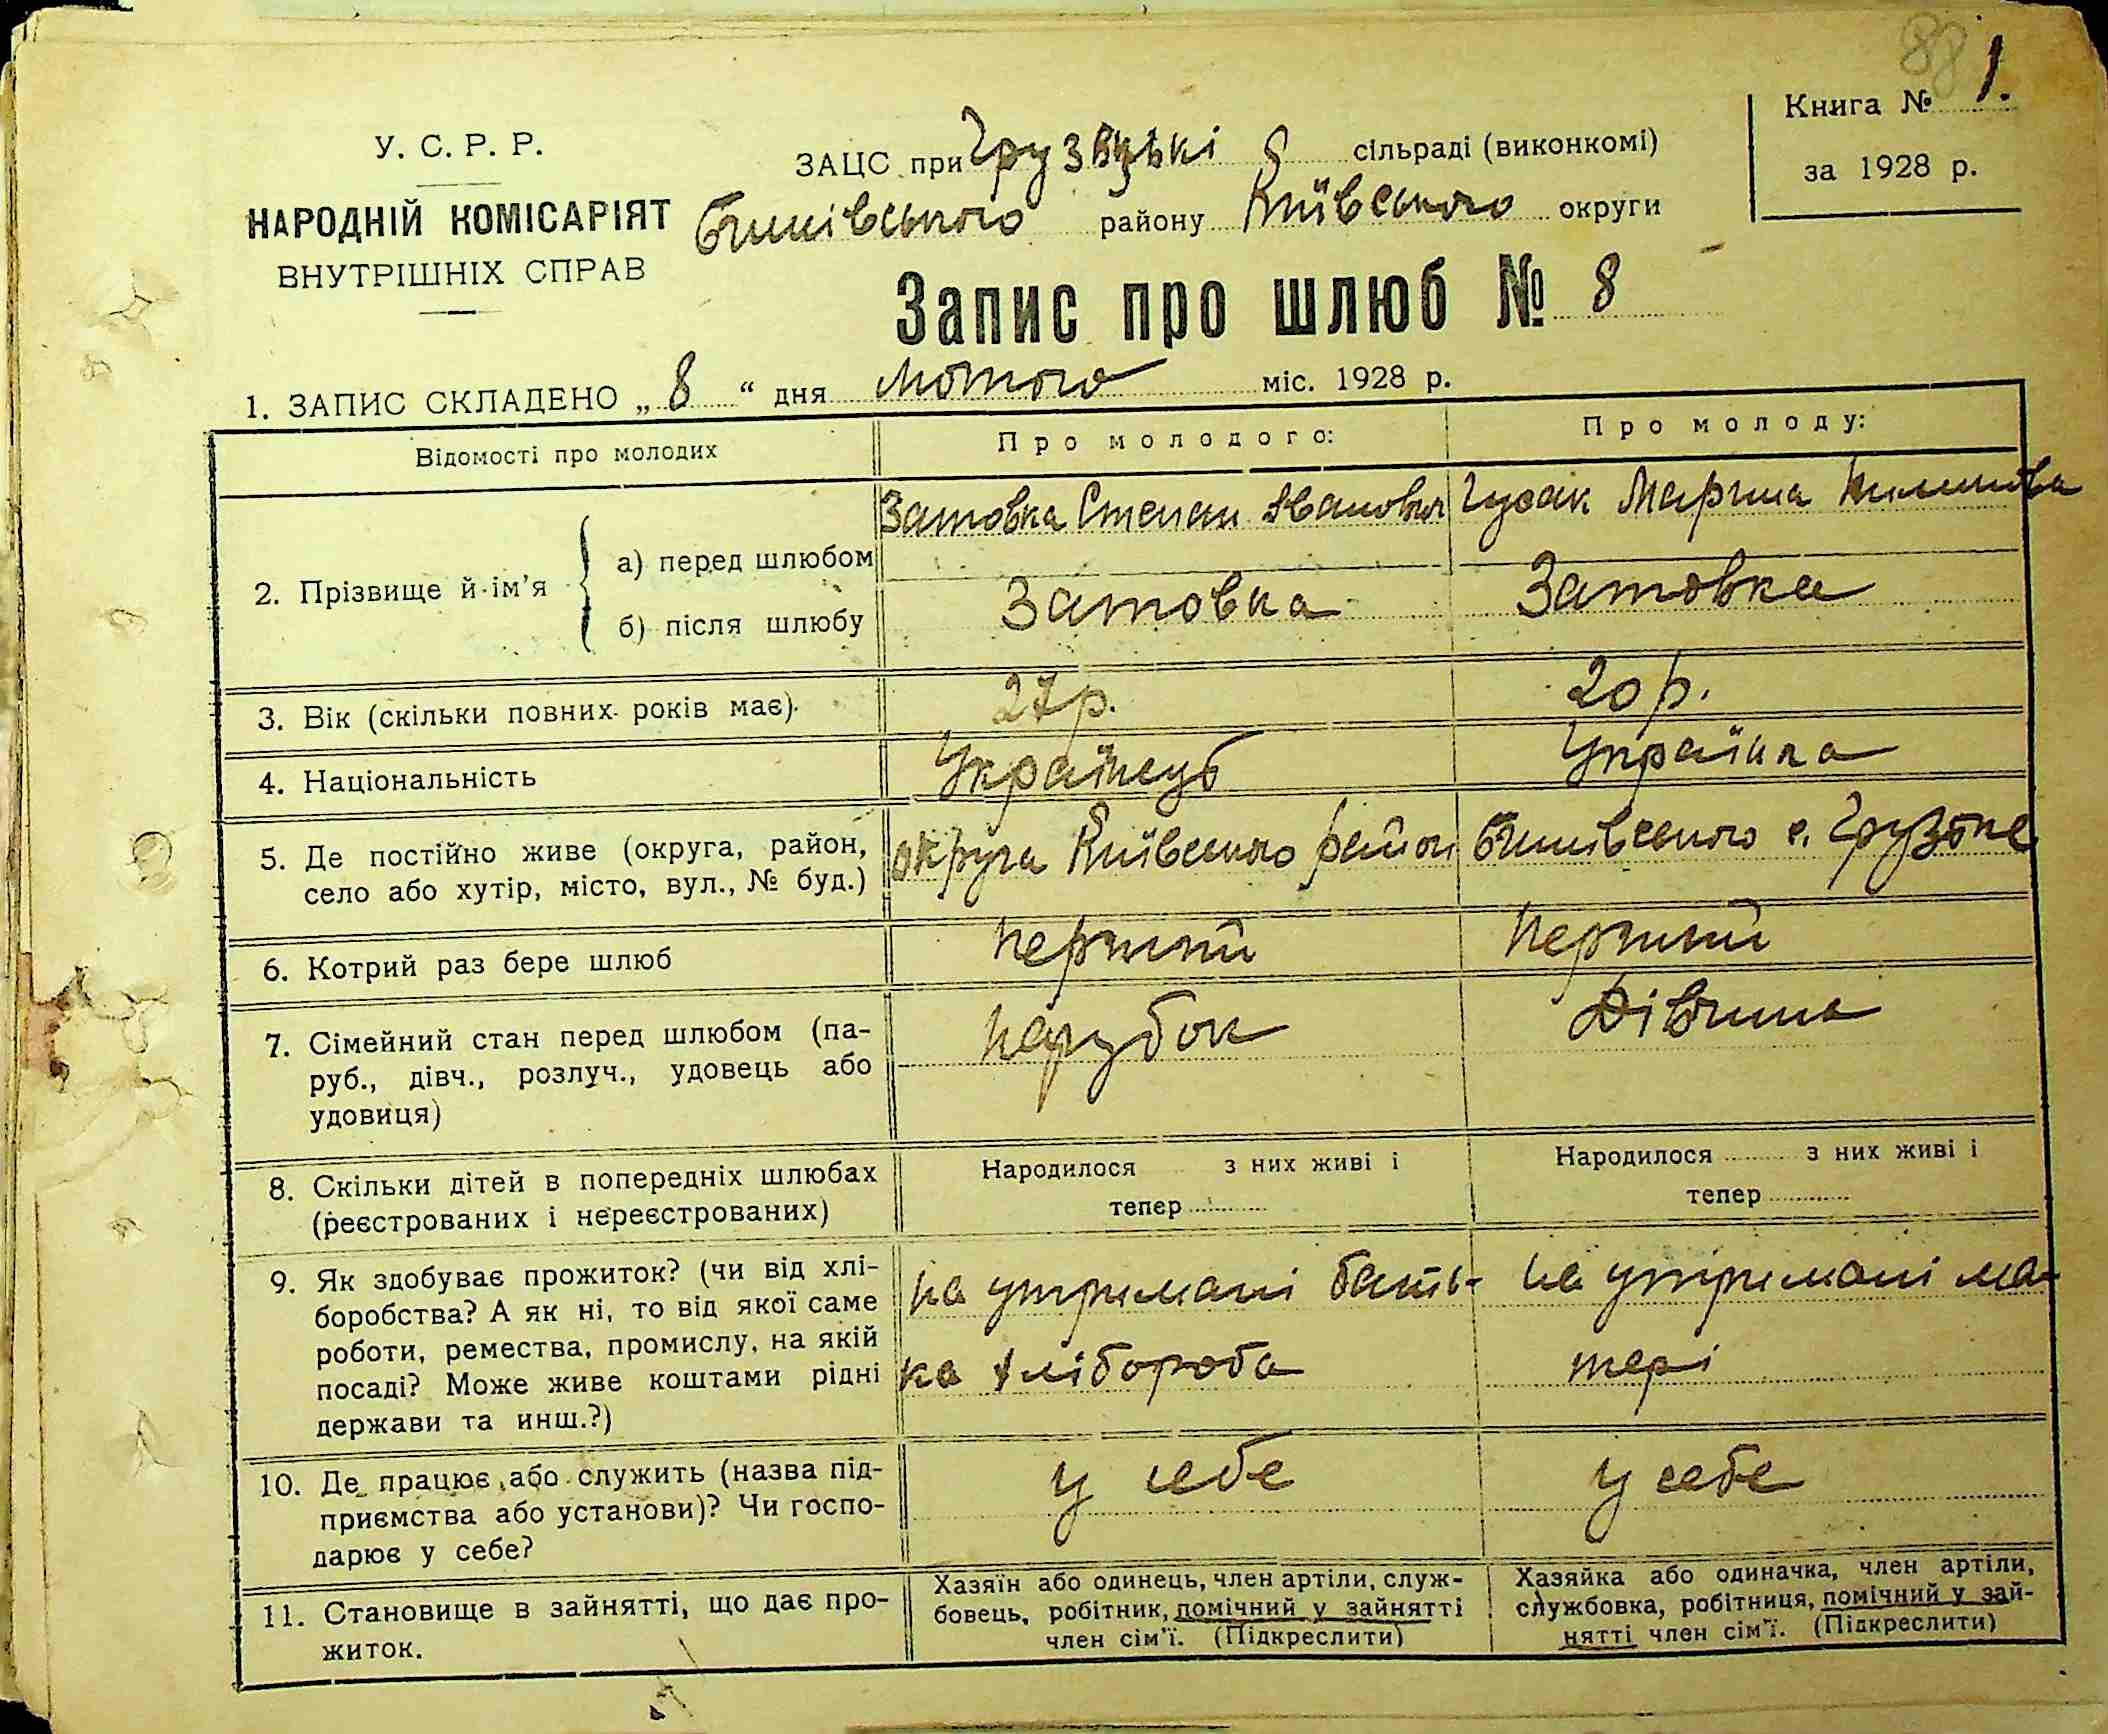 88 1.
Книга №
за 1928 р.
У. С. Р. Р.
НАРОДНІЙ КОМІСАРІЯТ
ВНУТРІШНІХ СПРАВ
ЗАЦС при Грузській сільраді (виконкомі)
Бишівського району Київського округи
Запис про шлюб № 8
1. ЗАПИС СКЛАДЕНО „ 8 “ дня лютого міс. 1928 р.
Відомості про молодих
Про молодого:
Про молоду:
2. Прізвище й ім’я
а) перед шлюбом
Затовка Степан Іванович
Гусак Марина
б) після шлюбу
Затовка
Затовка
3. Вік (скільки повних років має).
27 р.
20 р.
4. Національність
Українець
Українка
5. Де постійно живе (округа, район,
село або хутір, місто, вул., № буд.)
округа Київського район Бишівського с. Грузьке
6. Котрий раз бере шлюб
перший
перший
7. Сімейний стан перед шлюбом (па-
руб., дівч., розлуч., удовець або
удовиця)
парубок
Дівчина
8. Скільки дітей в попередніх шлюбах
(реєстрованих і нереєстрованих)
Народилося з них живі і
тепер
Народилося з них живі і
тепер
9. Як здобуває прожиток? (чи від хлі-
боробства? А як ні, то від якої саме
роботи, ремества, промислу, на якій
посаді? Може живе коштами рідні
держави та инш.?)
на утримані бать-
ка хлібороба
на утримані ма-
тері
10. Де працює або служить (назва під-
приємства або установи)? Чи госпо-
дарює у себе?
у себе
у себе
11. Становище в зайнятті, що дає про-
житок.
Хазяїн або одинець, член артіли, служ-
бовець, робітник, помічний у зайнятті
член сім’ї. (Підкреслити)
Хазяйка або одиначка, член артіли,
службовка, робітниця, помічний у зай-
нятті член сім’ї. (Підкреслити)